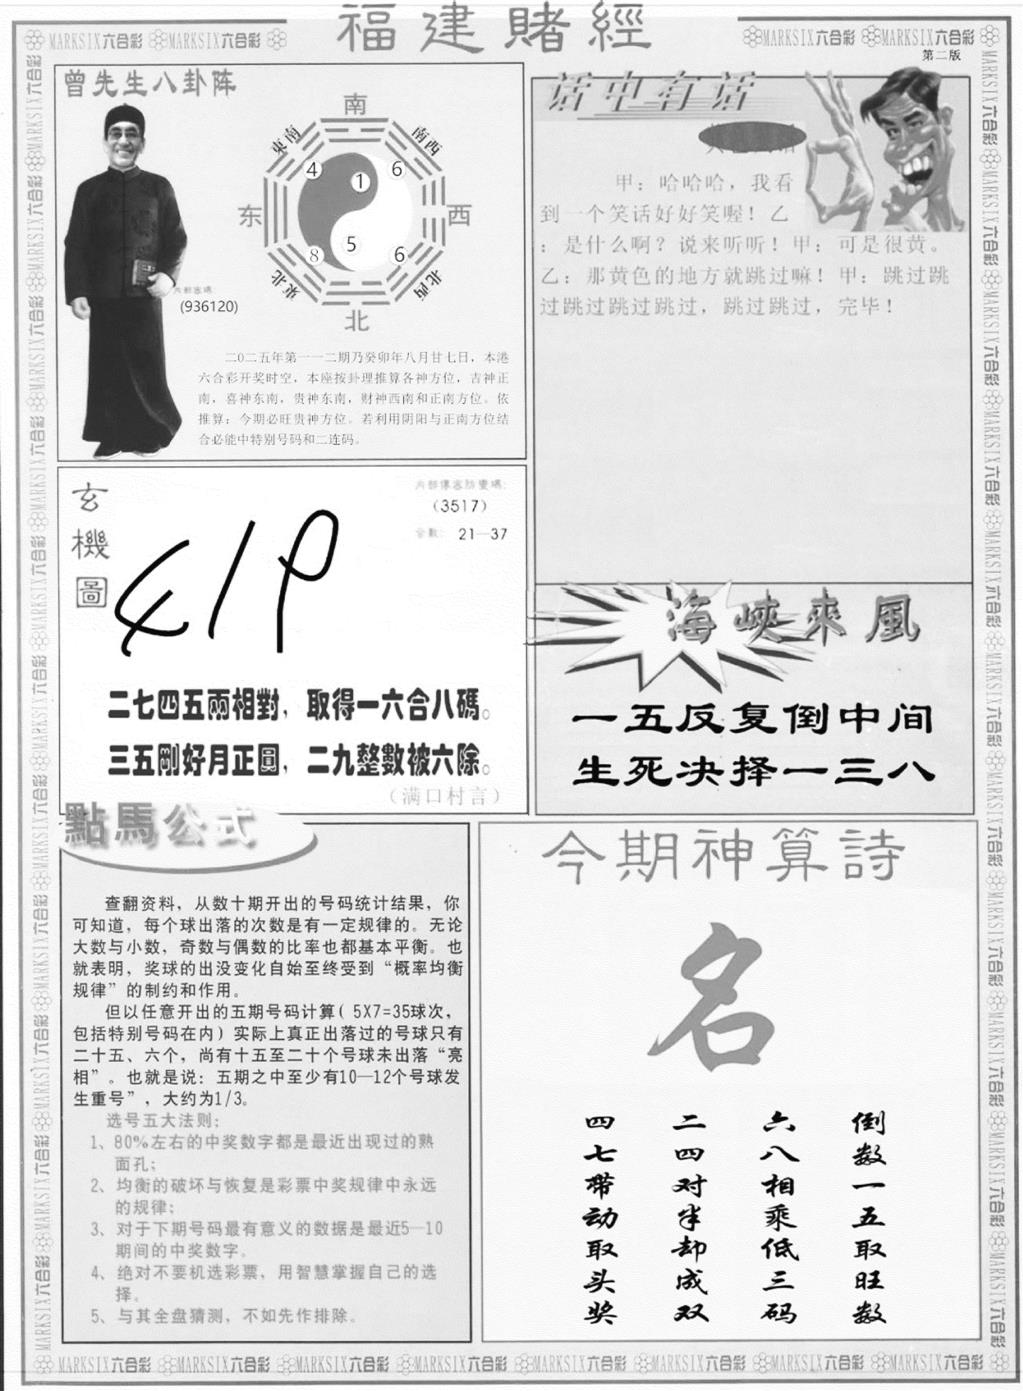 福建賭經
MARKSIX六合彩 MARKSIX六合彩
MARKSIX六合彩 MARKSIX六合彩
第二版
曾先生八卦阵
南
東南
南西
4
1
6
东
西
8
5
6
東北
北西
北
内部密碼:
(936120)
二0二五年第一一二期乃癸卯年八月廿七日，本港
六合彩开奖时空，本座按卦理推算各神方位，吉神正
南，喜神东南，贵神东南，财神西南和正南方位。依
推算：今期必旺贵神方位。若利用阴阳与正南方位结
合必能中特别号码和二连码。
话中有话
甲：哈哈哈，我看
到一个笑话好好笑喔！乙
：是什么啊？说来听听！甲：可是很黄。
乙：那黄色的地方就跳过嘛！甲：跳过跳
过跳过跳过跳过，跳过跳过，完毕！
玄機圖
内部傳密防變碼:
(3517)
合數: 21—37
二七四五兩相對，取得一六合八碼。
三五剛好月正圓，二九整數被六除。
（满口村言）
海峽來風
一五反复倒中间
生死决择一三八
點馬公式
查翻资料，从数十期开出的号码统计结果，你
可知道，每个球出落的次数是有一定规律的。无论
大数与小数，奇数与偶数的比率也都基本平衡。也
就表明，奖球的出没变化自始至终受到“概率均衡
规律”的制约和作用。
但以任意开出的五期号码计算( 5X7=35球次，
包括特别号码在内) 实际上真正出落过的号球只有
二十五、六个，尚有十五至二十个号球未出落“亮
相”。也就是说：五期之中至少有10—12个号球发
生重号”，大约为1/3。
选号五大法则:
1、80%左右的中奖数字都是最近出现过的熟
面孔;
2、均衡的破坏与恢复是彩票中奖规律中永远
的规律;
3、对于下期号码最有意义的数据是最近5—10
期间的中奖数字。
4、绝对不要机选彩票，用智慧掌握自己的选
择。
5、与其全盘猜测，不如先作排除。
今期神算詩
名
倒数一五取旺数
六八相乘低三码
二四对半却成双
四七带动取头奖
MARKSIX六合彩 MARKSIX六合彩 MARKSIX六合彩 MARKSIX六合彩 MARKSIX六合彩 MARKSIX六合彩 MARKSIX六合彩 MARKSIX六合彩